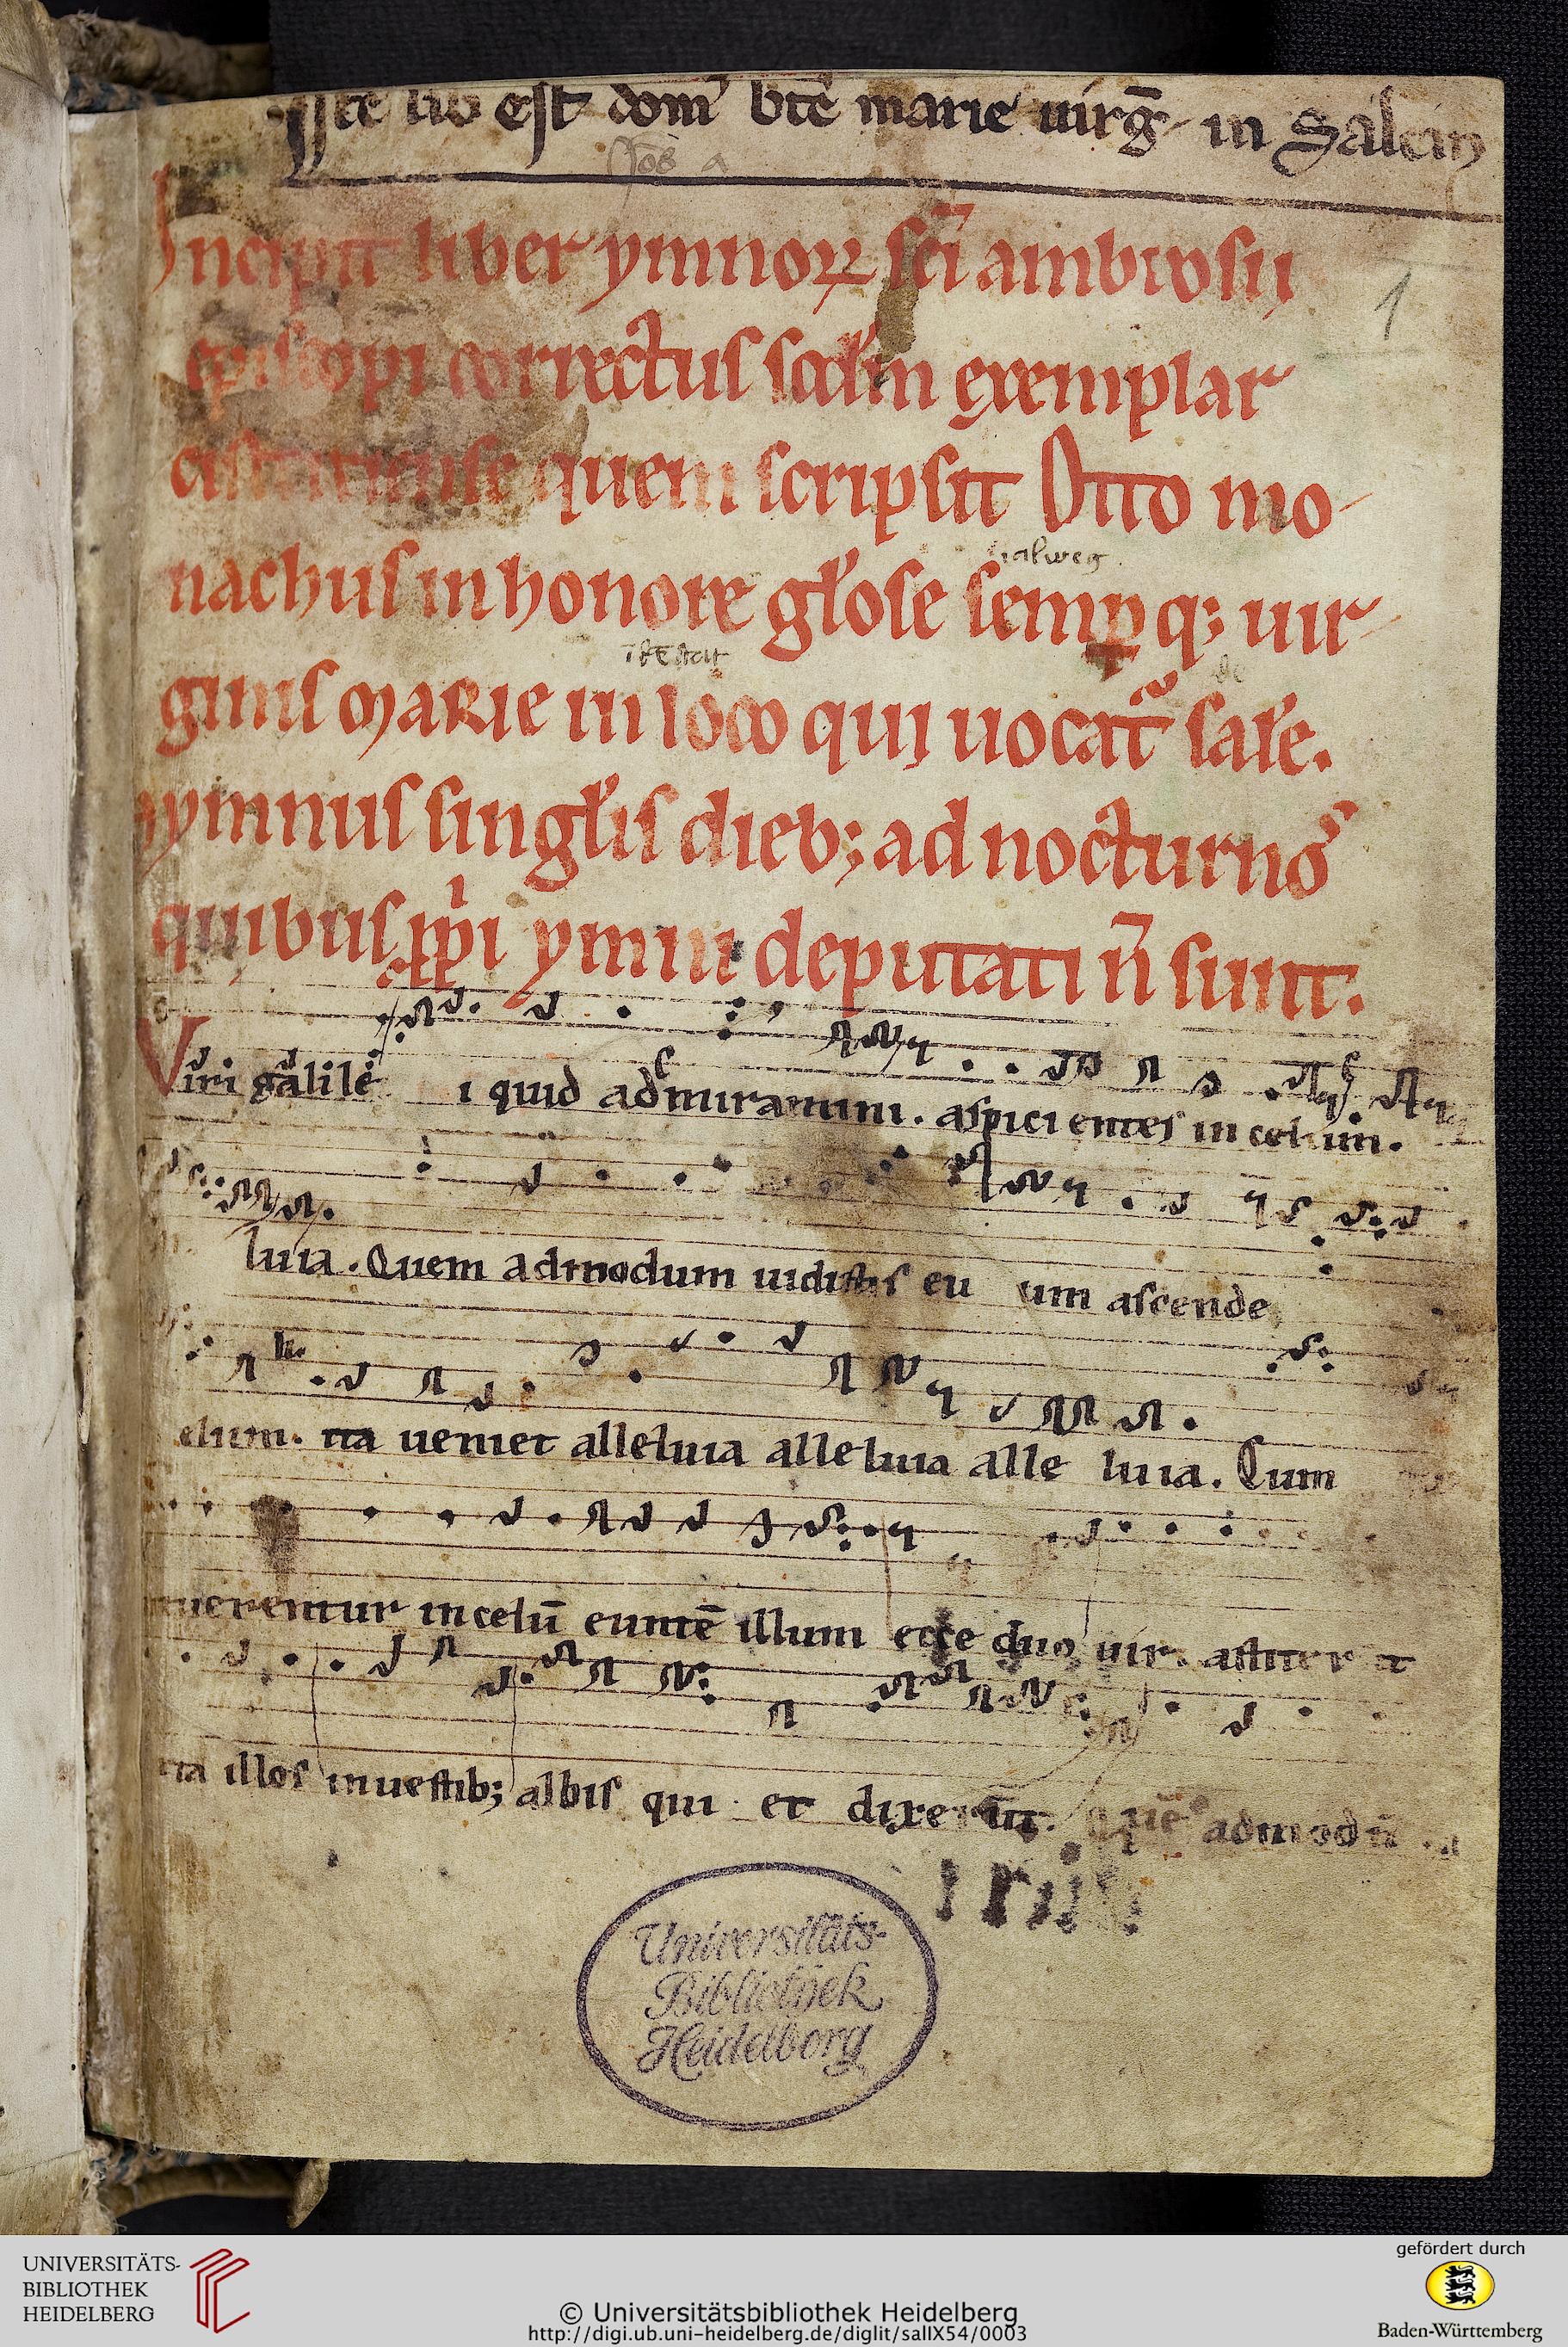 Iste lib est dom bte marie uirg in Salem
1
Incipit liber ymnoꝝ sci ambrosii
episcopi correctus scdm exemplar
cisterciense quem scripsit Otto mo-
salweg
nachus in honore glose sempq; uir-
ginis Marie in loco qui uocat sale.
ymnus singlis dieb; ad nocturnos
quibus ꝓpi ymni deputati n sunt.
Viri galile i quid admiramini. aspicientes in celum.
luia. Quem admodum uidistis eu um ascende
elum. ita ueniet alleluia alleluia alle luia. Cum
tuerentur in celū euntē illum ecce duo uir. astiter t
ta illos in uestib; albis qui et dixerūt. quē admodū
Universitäts-
Bibliothek
Heidelberg
UNIVERSITÄTS-
BIBLIOTHEK
HEIDELBERG
© Universitätsbibliothek Heidelberg
http://digi.ub.uni-heidelberg.de/diglit/salIX54/0003
gefördert durch
Baden-Württemberg